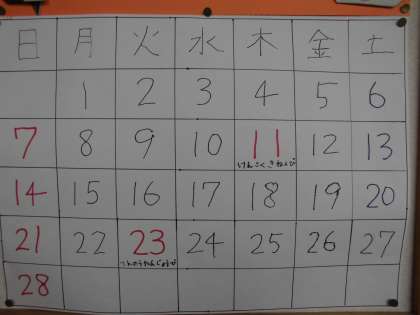 日 月 火 水 木 金 土
1 2 3 4 5 6
7 8 9 10 11 12 13
けんこくきねんび
14 15 16 17 18 19 20
21 22 23 24 25 26 27
てんのうたんじょうび
28